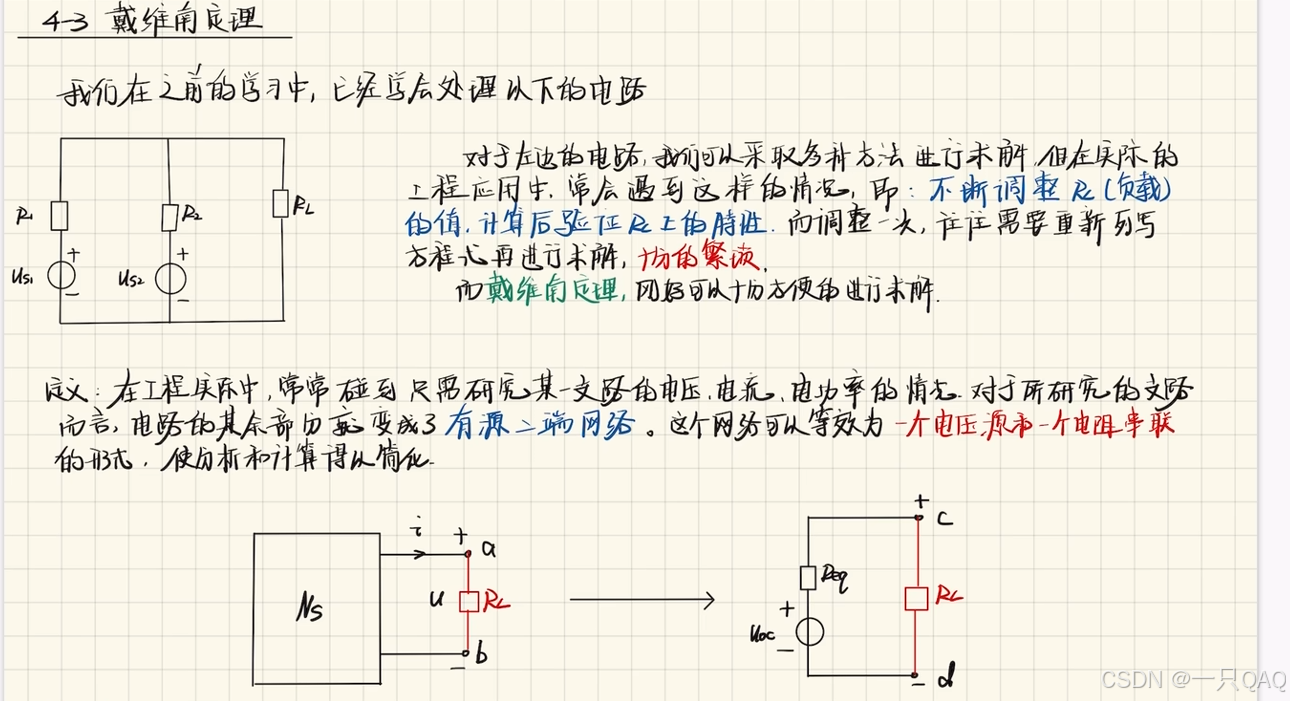 4-3 戴维南定理
我们在之前的学习中,已经学会处理以下的电路
对于左边的电路,我们可以采取多种方法进行求解,但在实际的
工程应用中,常会遇到这样的情况,即:不断调整RL(负载)
的值,计算后验证RL上的特性.而调整一次,往往需要重新列写
方程式再进行求解,十分的繁琐.
而戴维南定理,刚好可以十分方便的进行求解.
R1
R2
RL
+
+
US1
US2
-
-
定义:在工程实际中,常常碰到只需研究某一支路的电压、电流、电功率的情况.对于所研究的支路
而言,电路的其余部分就变成了有源二端网络。这个网络可以等效为一个电压源和一个电阻串联
的形式,使分析和计算得以简化.
Ns
i
+
a
u
RL
-
b
+
c
Req
RL
+
uoc
-
-
d
CSDN @一只QAQ